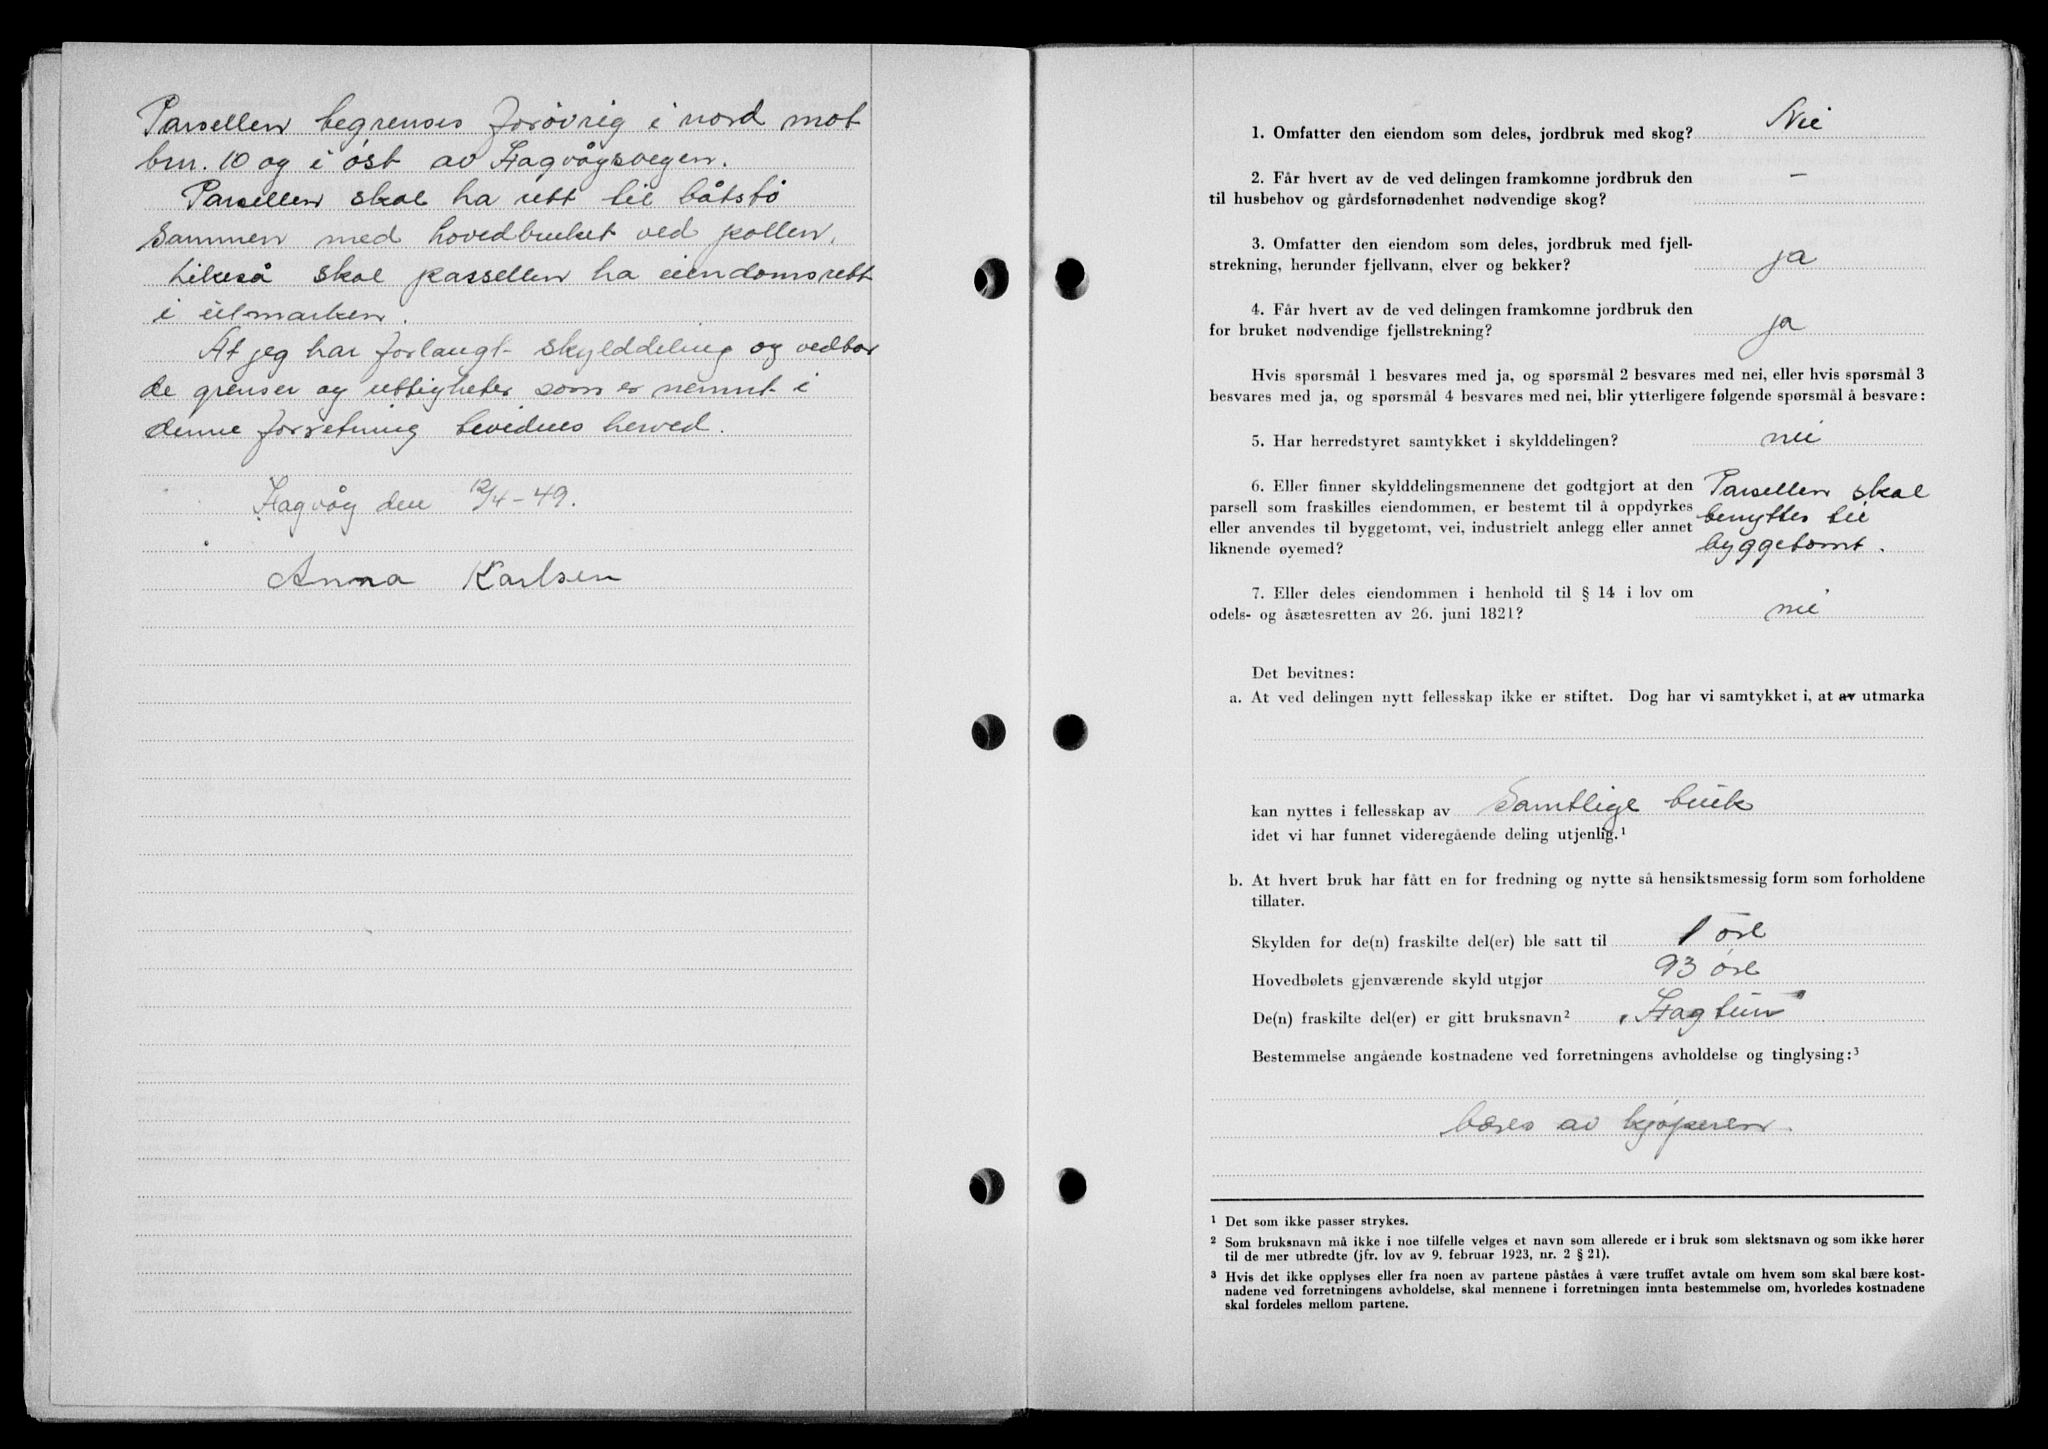 Parsellen begrenses forøvrig i nord mot
brn. 10 og i øst av Hagvågsvegen.
Parsellen skal ha rett til båtstø
sammen med hovedbruket ved pollen.
Likeså skal passellen ha eiendomsrett
i utmarken.
At jeg har forlangt skylddeling og vedtar
de grenser og rettigheter som er nemnt i
denne forretning bevidnes herved.
Hagvåg den 12/4-49.
Anna Karlsen
1. Omfatter den eiendom som deles, jordbruk med skog? Nei
2. Får hvert av de ved delingen framkomne jordbruk den
til husbehov og gårdsfornødenhet nødvendige skog? –
3. Omfatter den eiendom som deles, jordbruk med fjell-
strekning, herunder fjellvann, elver og bekker? ja
4. Får hvert av de ved delingen framkomne jordbruk den
for bruket nødvendige fjellstrekning? ja
Hvis spørsmål 1 besvares med ja, og spørsmål 2 besvares med nei, eller hvis spørsmål 3
besvares med ja, og spørsmål 4 besvares med nei, blir ytterligere følgende spørsmål å besvare:
5. Har herredstyret samtykket i skylddelingen? nei
6. Eller finner skylddelingsmennene det godtgjort at den
parsell som fraskilles eiendommen, er bestemt til å oppdyrkes
eller anvendes til byggetomt, vei, industrielt anlegg eller annet
liknende øyemed?
Parsellen skal
benyttes til
byggetomt.
7. Eller deles eiendommen i henhold til § 14 i lov om
odels- og åsætesretten av 26. juni 1821? nei
Det bevitnes:
a. At ved delingen nytt fellesskap ikke er stiftet. Dog har vi samtykket i, at av utmarka
kan nyttes i fellesskap av Samtlige bruk
idet vi har funnet videregående deling utjenlig.¹
b. At hvert bruk har fått en for fredning og nytte så hensiktsmessig form som forholdene
tillater.
Skylden for de(n) fraskilte del(er) ble satt til 1 øre
Hovedbølets gjenværende skyld utgjør 93 øre
De(n) fraskilte del(er) er gitt bruksnavn² "Hagtun"
Bestemmelse angående kostnadene ved forretningens avholdelse og tinglysing:³
bæres av kjøperen.
¹ Det som ikke passer strykes.
² Som bruksnavn må ikke i noe tilfelle velges et navn som allerede er i bruk som slektsnavn og som ikke hører
til de mer utbredte (jfr. lov av 9. februar 1923, nr. 2 § 21).
³ Hvis det ikke opplyses eller fra noen av partene påståes å være truffet avtale om hvem som skal bære kost-
nadene ved forretningens avholdelse, skal mennene i forretningen innta bestemmelse om, hvorledes kostnadene
skal fordeles mellom partene.